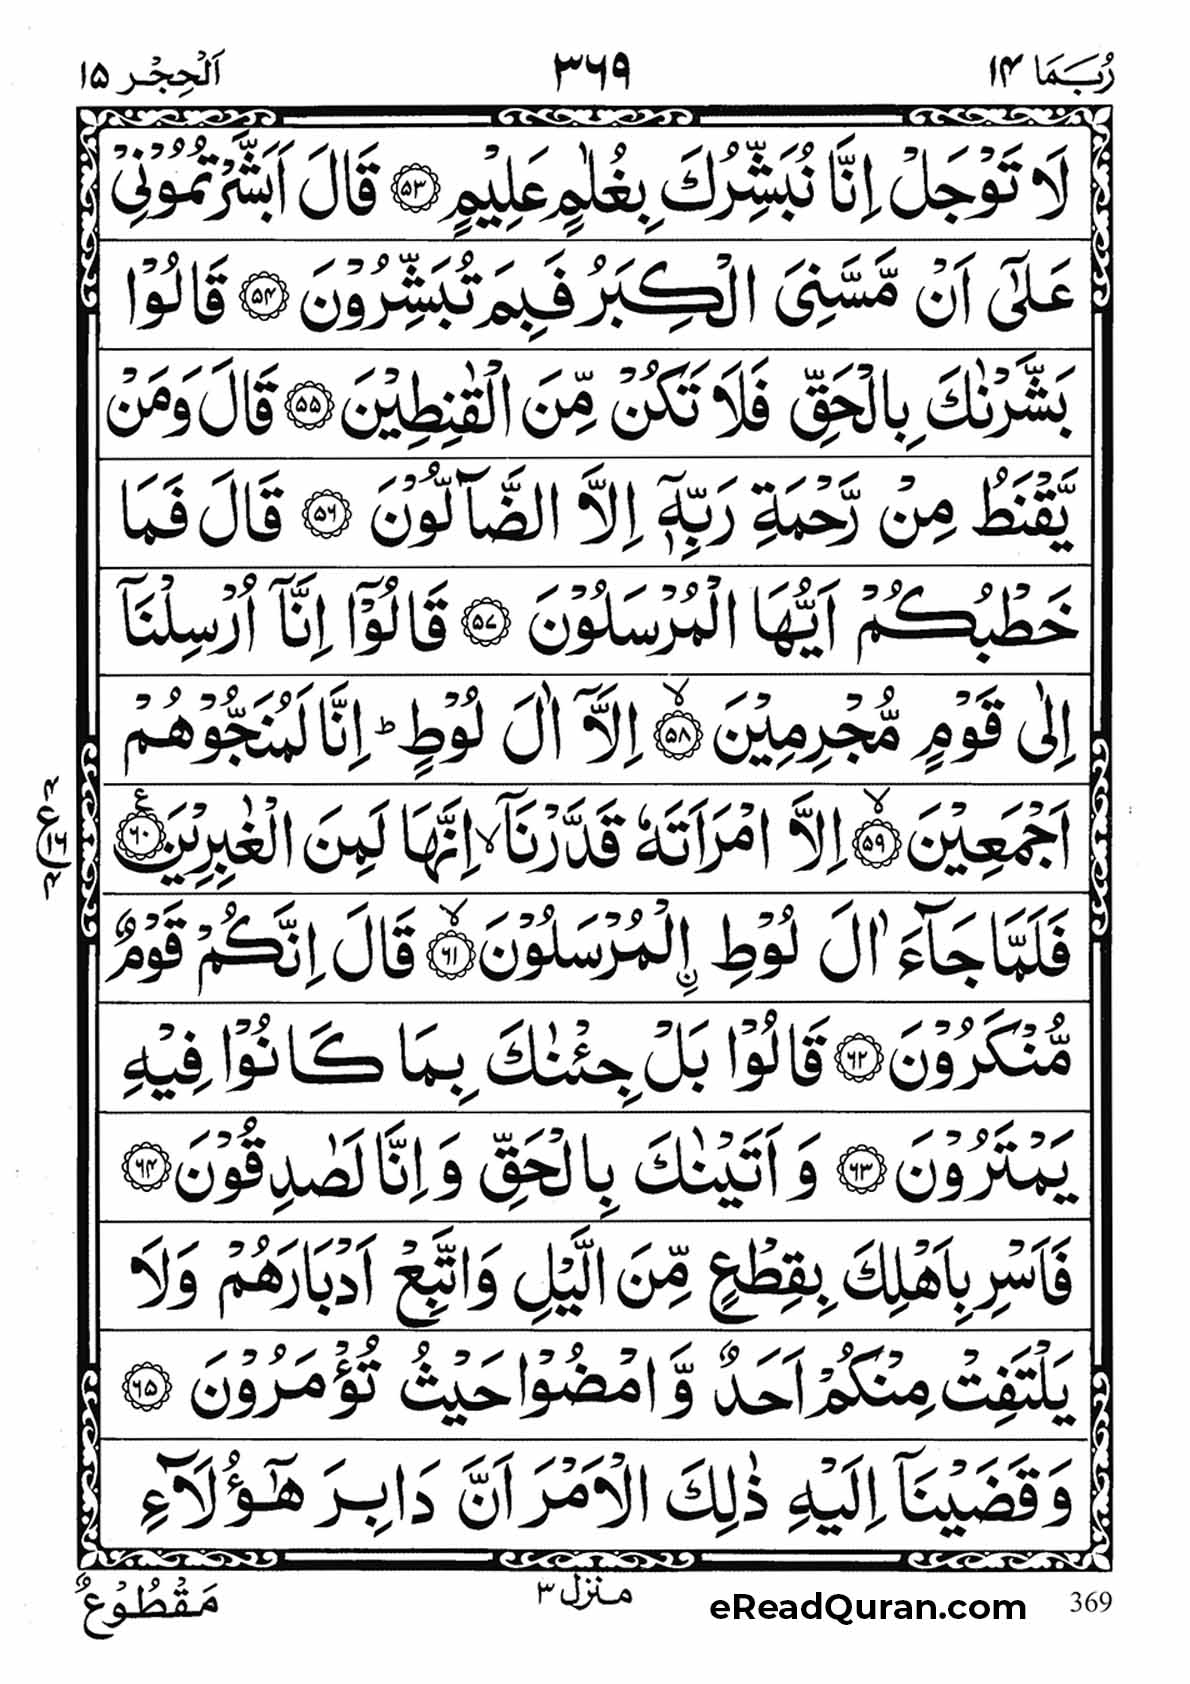 رُبَمَا ۱۴
۳۶۹
اَلْحِجْر ۱۵
لَا تَوْجَلْ اِنَّا نُبَشِّرُكَ بِغُلٰمٍ عَلِيْمٍ ۵۳ قَالَ اَبَشَّرْتُمُوْنِيْ
عَلٰٓى اَنْ مَّسَّنِىَ الْكِبَرُ فَبِمَ تُبَشِّرُوْنَ ۵۴ قَالُوْا
بَشَّرْنٰكَ بِالْحَقِّ فَلَا تَكُنْ مِّنَ الْقٰنِطِيْنَ ۵۵ قَالَ وَمَنْ
يَّقْنَطُ مِنْ رَّحْمَةِ رَبِّهٖٓ اِلَّا الضَّآلُّوْنَ ۵۶ قَالَ فَمَا
خَطْبُكُمْ اَيُّهَا الْمُرْسَلُوْنَ ۵۷ قَالُوْٓا اِنَّآ اُرْسِلْنَآ
اِلٰى قَوْمٍ مُّجْرِمِيْنَ ۵۸ۙ اِلَّآ اٰلَ لُوْطٍ ؕ اِنَّا لَمُنَجُّوْهُمْ
اَجْمَعِيْنَ ۵۹ۙ اِلَّا امْرَاَتَهٗ قَدَّرْنَآ ۙ اِنَّهَا لَمِنَ الْغٰبِرِيْنَ ۶۰ ع
فَلَمَّا جَآءَ اٰلَ لُوْطِ ۨالْمُرْسَلُوْنَ ۶۱ۙ قَالَ اِنَّكُمْ قَوْمٌ
مُّنْكَرُوْنَ ۶۲ قَالُوْا بَلْ جِئْنٰكَ بِمَا كَانُوْا فِيْهِ
يَمْتَرُوْنَ ۶۳ وَاَتَيْنٰكَ بِالْحَقِّ وَاِنَّا لَصٰدِقُوْنَ ۶۴
فَاَسْرِ بِاَهْلِكَ بِقِطْعٍ مِّنَ الَّيْلِ وَاتَّبِعْ اَدْبَارَهُمْ وَلَا
يَلْتَفِتْ مِنْكُمْ اَحَدٌ وَّامْضُوْا حَيْثُ تُؤْمَرُوْنَ ۶۵
وَقَضَيْنَآ اِلَيْهِ ذٰلِكَ الْاَمْرَ اَنَّ دَابِرَ هٰٓؤُلَآءِ
مَقْطُوْعٌ
منزل ۳
eReadQuran.com
369